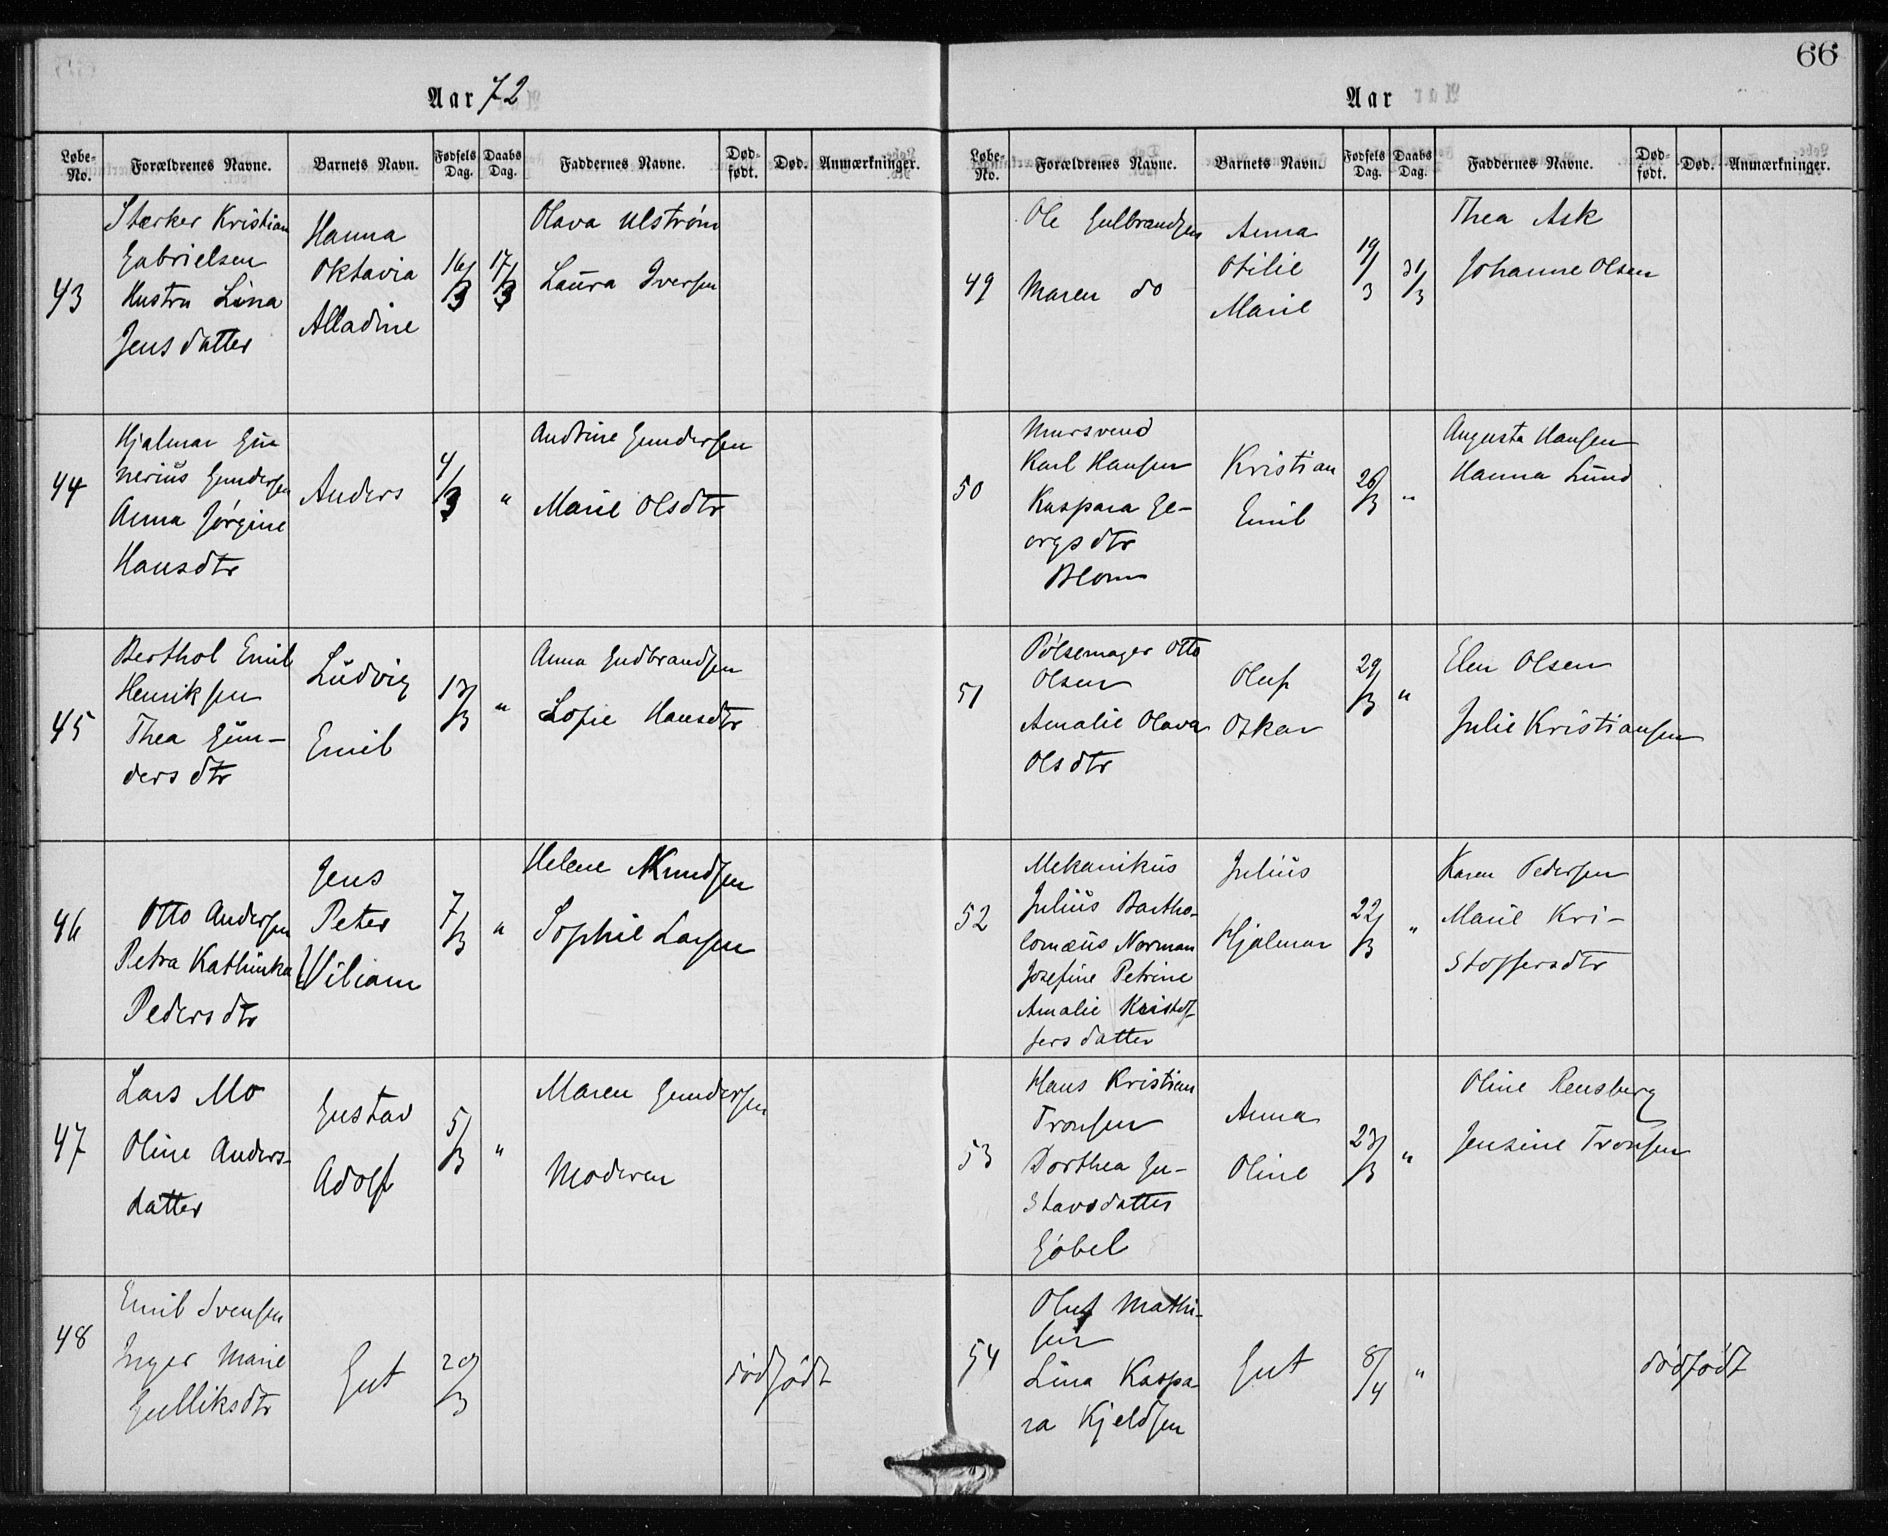 66
Aar 72
Løbe-No. Forældrenes Navne. Barnets Navn. Fødsels Dag. Daabs Dag. Faddernes Navne. Død-født. Død. Anmærkninger.
43
Stærker Kristian
Gabrielsen
Hustru Lina
Jensdatter
Hanna
Oktavia
Alladine
16/3
17/3
Olava Ulstrøm
Laura Iversen
44
Hjalmar Gun
nerius Gundersen
Anna Jørgine
Hansdtr
Anders
4/3
"
Andrine Gundersen
Marie Olsdtr
45
Berthol Emil
Henriksen
Thea Gun-
dersdtr
Ludvig
Emil
13/3
"
Anna Gudbrandsen
Sofie Hansdtr
46
Otto Andersen
Petra Kathinka
Pedersdtr
Jens
Peter
Viliam
7/3
"
Helene Knudsen
Sophie Larsen
47
Lars Mo
Oline Anders-
datter
Gustav
Adolf
5/3
"
Maren Gundersen
Moderen
48
Emil Svensen
Inger Marie
Gulliksdtr
Gut
20/3
dødfødt
Aar
Løbe-No. Forældrenes Navne. Barnets Navn. Fødsels Dag. Daabs Dag. Faddernes Navne. Død-født. Død. Anmærkninger.
49
Ole Gulbrandsen
Maren do
Anna
Otilie
Marie
19/3
31/3
Thea Ask
Johanne Olsen
50
Mursvend
Karl Hansen
Kaspara Ge-
orgsdtr
Blom
Kristian
Emil
26/3
"
Augusta Hansen
Hanna Lund
51
Pølsemager Otto
Olsen
Amalie Olava
Olsdtr
Oluf
Oskar
29/3
"
Elen Olsen
Julie Kristiansen
52
Mekanikus
Julius Bartho-
lomæus Norman
Josefine Petrine
Amalie Kristof-
fersdatter
Julius
Hjalmar
22/3
"
Karen Pedersen
Marie Kri-
stoffersdtr
53
Hans Kristian
Tronsen
Dorthea Gu-
stavsdatter
Gøbel
Anna
Oline
23/3
"
Oline Rensberg
Jensine Tronsen
54
Oluf Mathi-
sen
Lina Kaspa-
ra Kjeldsen
Gut
8/4
"
dødfødt